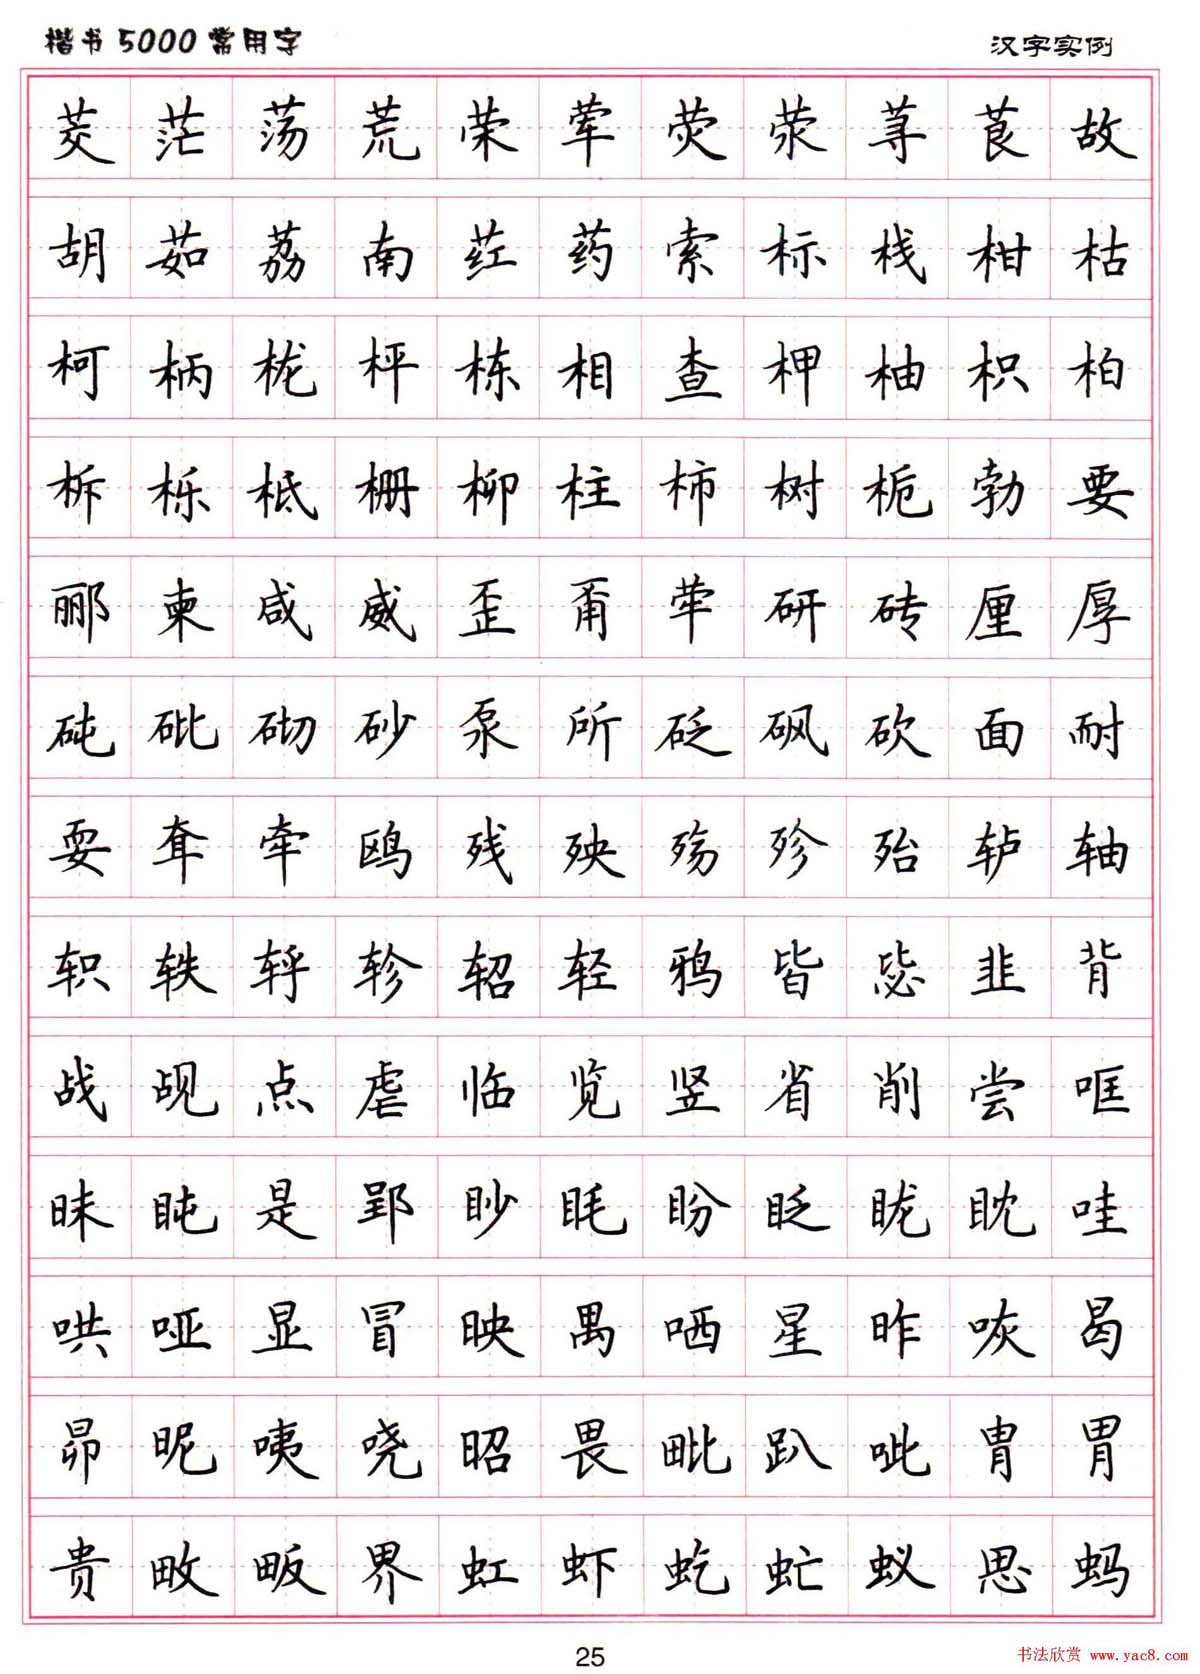 楷书5000常用字 汉字实例
茭 茫 荡 荒 荣 荤 荧 荥 荨 茛 故
胡 茹 荔 南 荭 药 索 标 栈 柑 枯
柯 柄 栊 枰 栋 相 查 柙 柚 枳 柏
柝 栎 柢 栅 柳 柱 柿 树 栀 勃 要
郦 柬 咸 威 歪 甭 荦 研 砖 厘 厚
砘 砒 砌 砂 泵 所 砭 砜 砍 面 耐
耍 耷 牵 鸥 残 殃 殇 殄 殆 轳 轴
轵 轶 轷 轸 轺 轻 鸦 皆 毖 韭 背
战 觇 点 虐 临 览 竖 省 削 尝 哐
昧 盹 是 郢 眇 眊 盼 眨 眬 眈 哇
哄 哑 显 冒 映 禺 哂 星 昨 咴 曷
昴 昵 咦 哓 昭 畏 毗 趴 呲 胄 胃
贵 畋 畈 界 虹 虾 虼 虻 蚁 思 蚂
25
书法欣赏 www.yac8.com